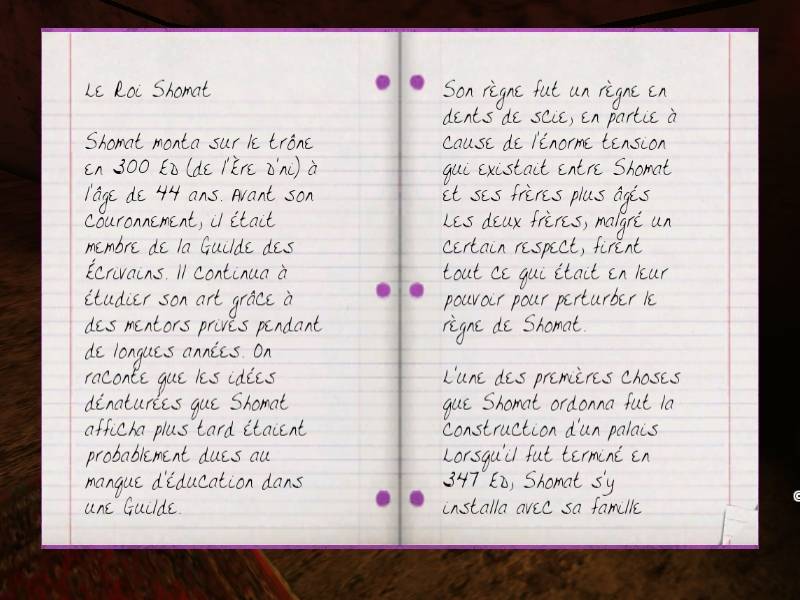 Le Roi Shomat
Shomat monta sur le trône
en 300 ED (de l'Ère D'ni) à
l'âge de 44 ans. Avant son
couronnement, il était
membre de la Guilde des
Écrivains. Il continua à
étudier son art grâce à
des mentors privés pendant
de longues années. On
raconte que les idées
dénaturées que Shomat
afficha plus tard étaient
probablement dues au
manque d'éducation dans
une Guilde.
Son règne fut un règne en
dents de scie, en partie à
cause de l'énorme tension
qui existait entre Shomat
et ses frères plus âgés
Les deux frères, malgré un
certain respect, firent
tout ce qui était en leur
pouvoir pour perturber le
règne de Shomat.
L'une des premières choses
que Shomat ordonna fut la
construction d'un palais
Lorsqu'il fut terminé en
347 ED, Shomat s'y
installa avec sa famille